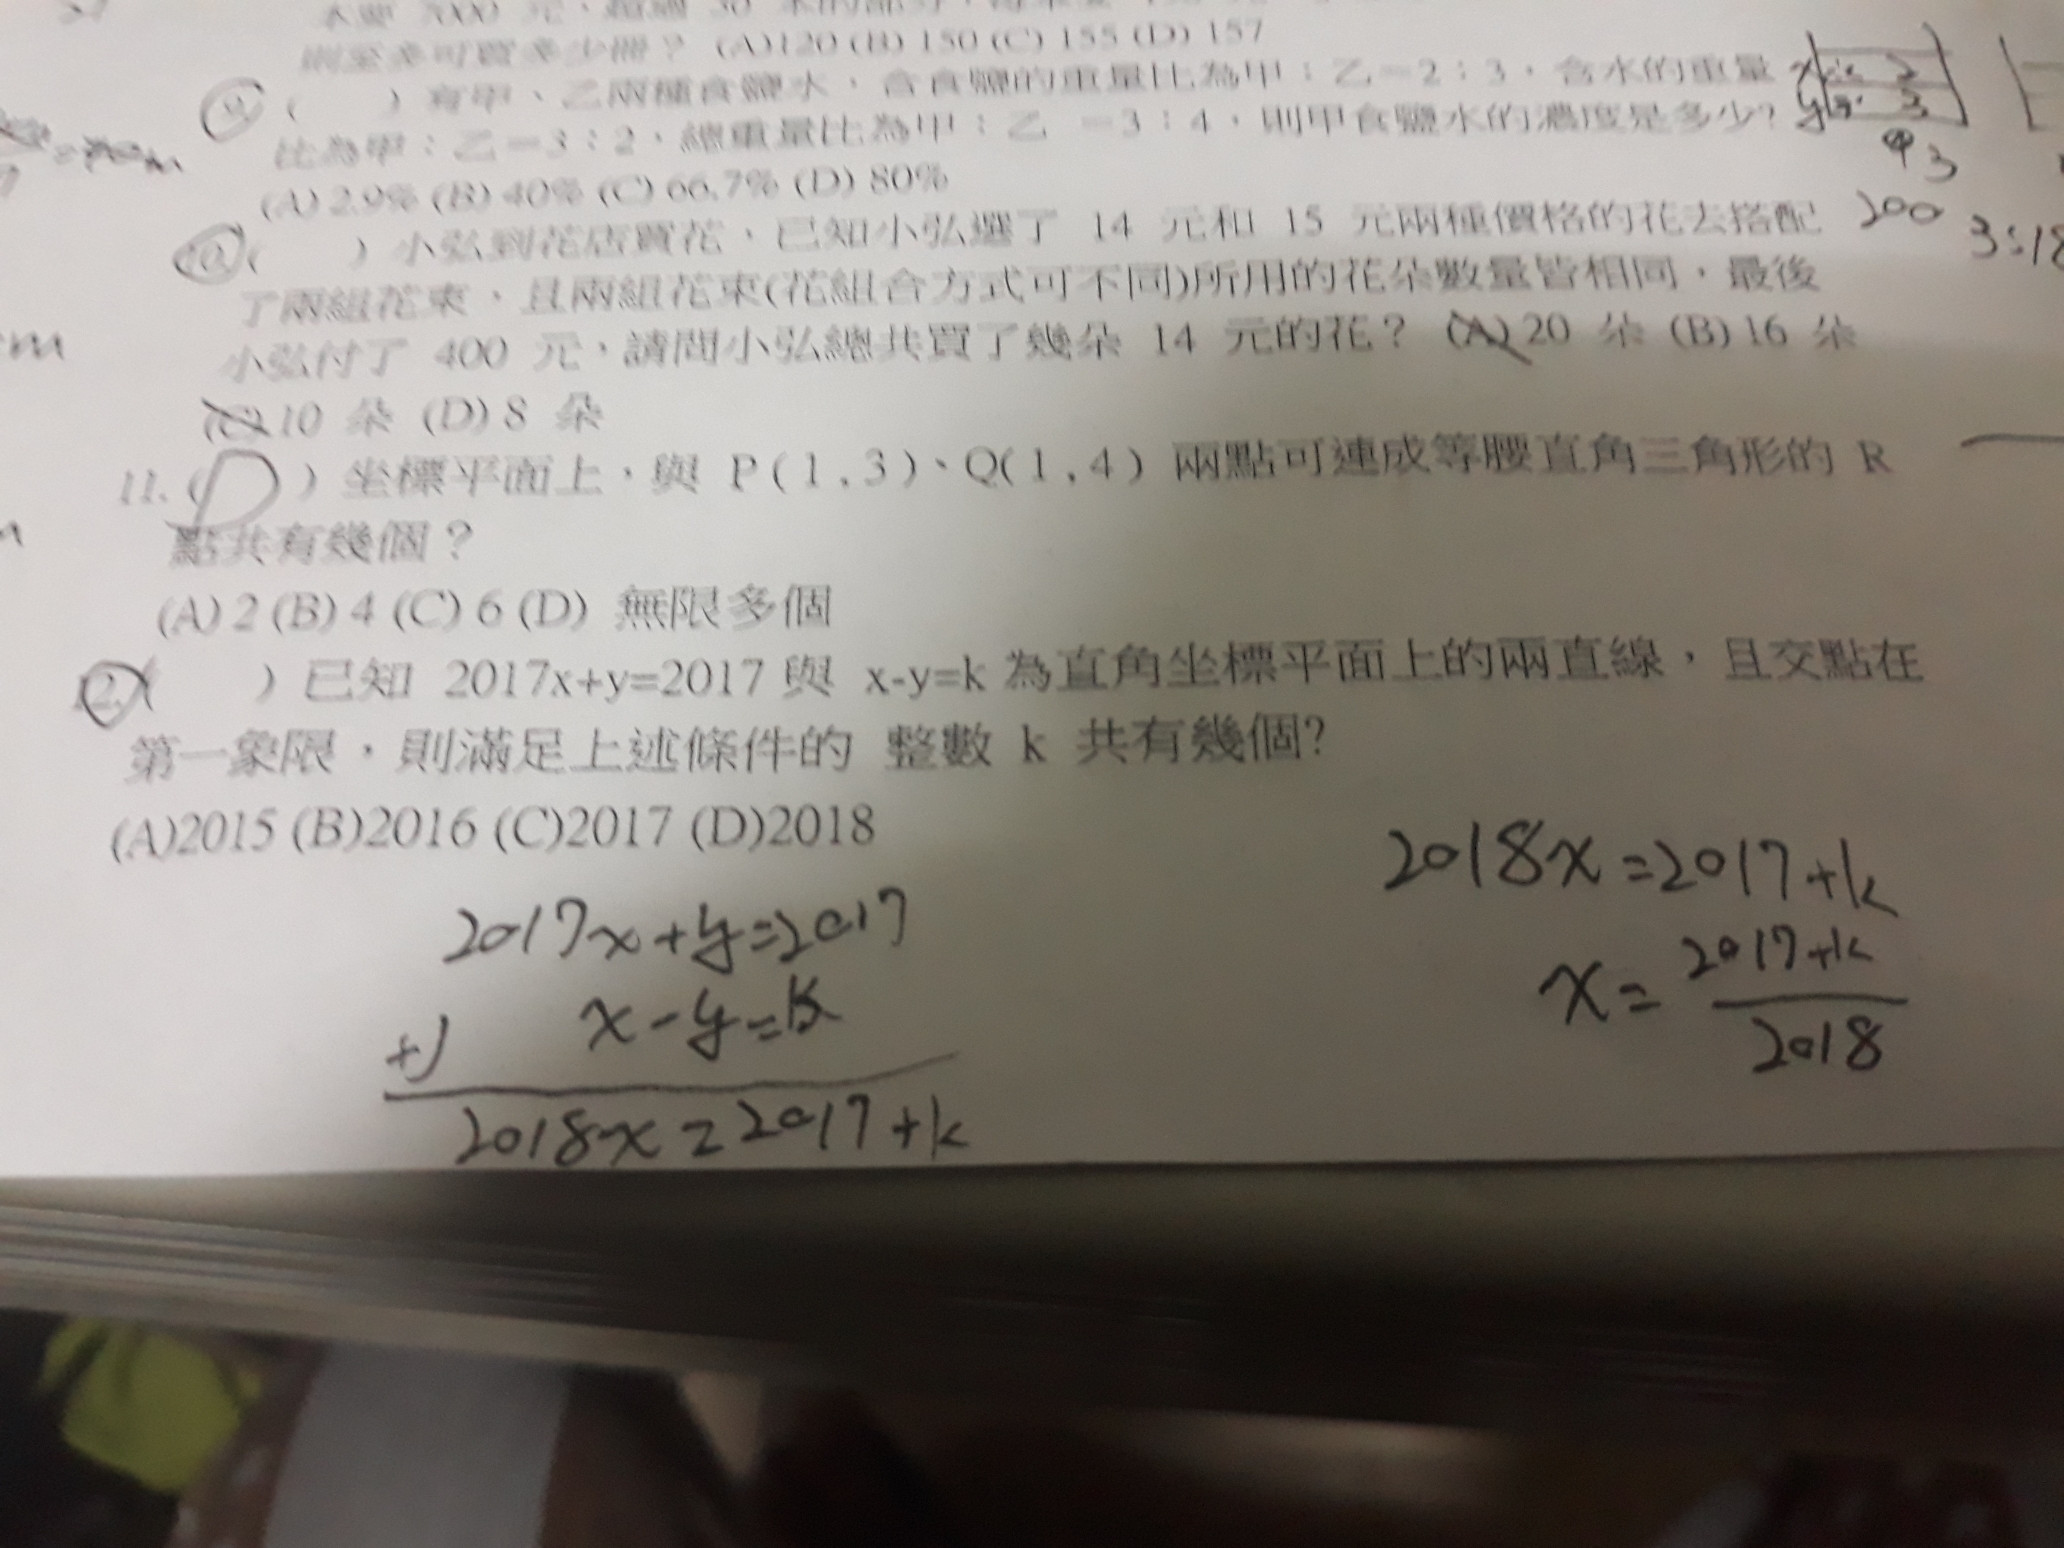 則至多可買多少冊？ (A)120 (B) 150 (C) 155 (D) 157
9. ( ) 有甲、乙兩種食鹽水，含食鹽的重量比為甲：乙=2：3，含水的重量
比為甲：乙=3：2，總重量比為甲：乙 =3：4，則甲食鹽水的濃度是多少?
(A) 2.9% (B) 40% (C) 66.7% (D) 80%
10. ( ) 小弘到花店買花，已知小弘選了 14 元和 15 元兩種價格的花去搭配
了兩組花束，且兩組花束(花組合方式可不同)所用的花朵數量皆相同，最後
小弘付了 400 元，請問小弘總共買了幾朵 14 元的花？ (A) 20 朵 (B) 16 朵
(C) 10 朵 (D) 8 朵
11. (D) 坐標平面上，與 P(1,3)、Q(1,4) 兩點可連成等腰直角三角形的 R
點共有幾個？
(A) 2 (B) 4 (C) 6 (D) 無限多個
12. ( ) 已知 2017x+y=2017 與 x-y=k 為直角坐標平面上的兩直線，且交點在
第一象限，則滿足上述條件的 整數 k 共有幾個?
(A)2015 (B)2016 (C)2017 (D)2018
2017x+y=2017
+) x-y=k
2018x=2017+k
2018x=2017+k
x=2017+k
2018
200
3:18
cm